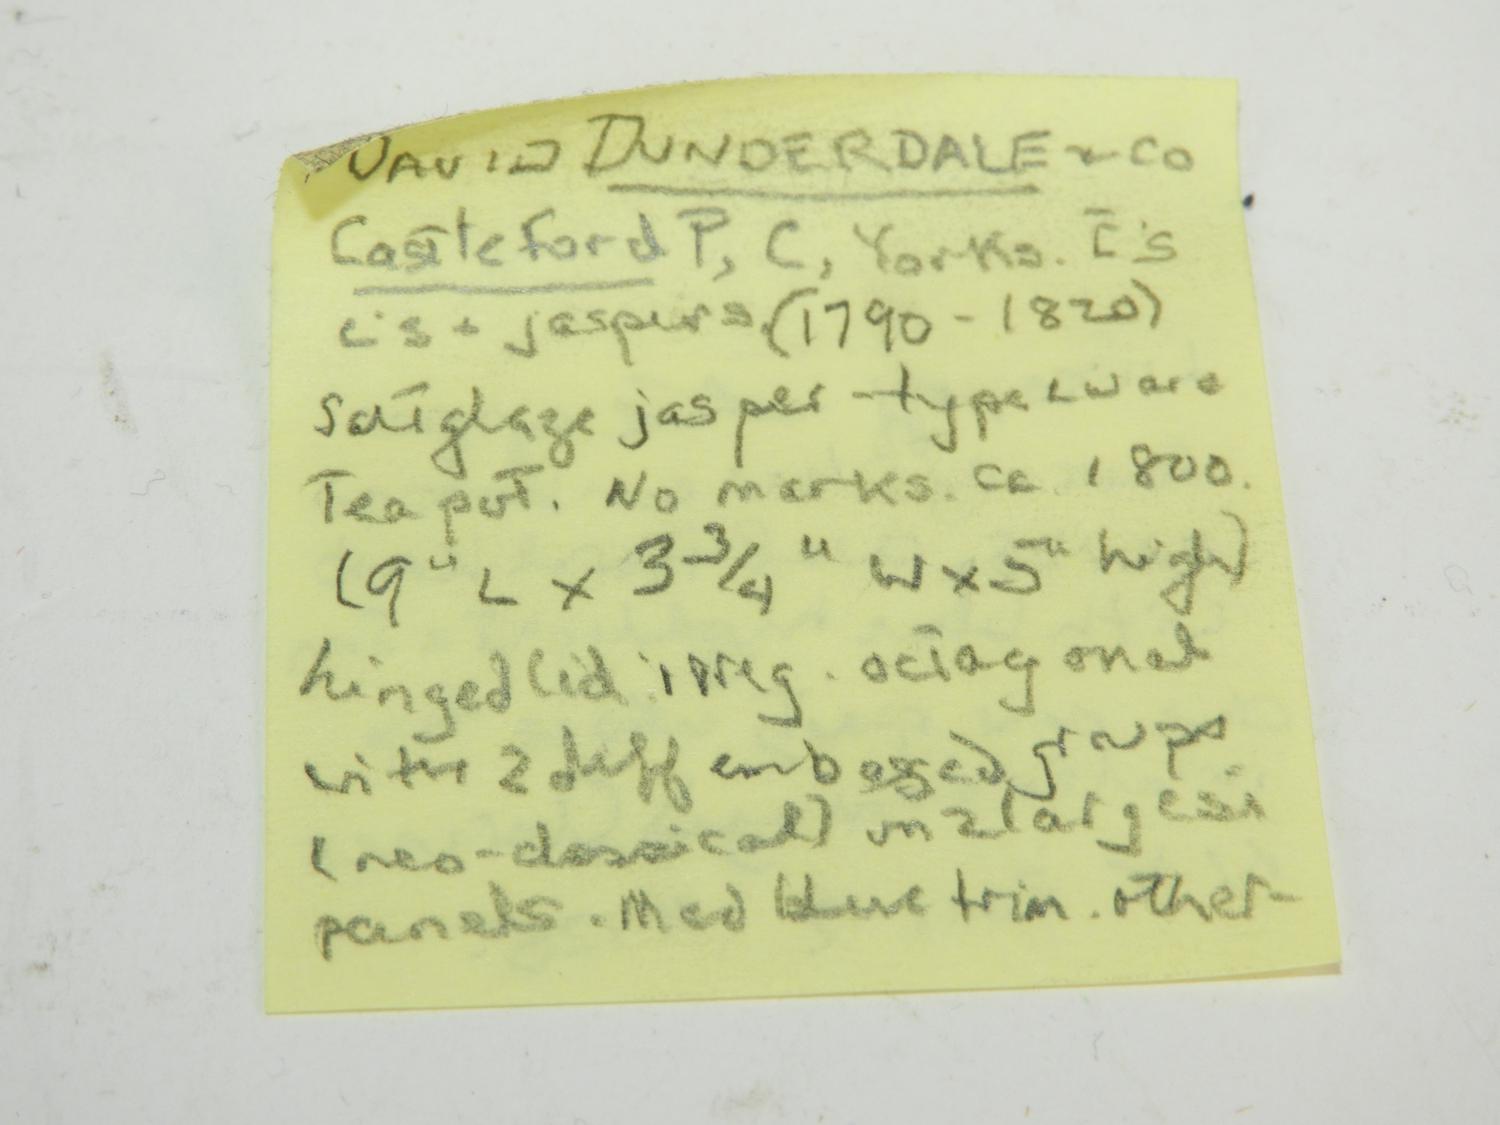 DAVID DUNDERDALE + CO
Castleford P, C, Yorks. E's
c's + jaspers (1790 - 1820)
Saltglaze jasper - type ware
Teapot. No marks. ca. 1800.
(9" L x 3 3/4" W x 5" high)
hinged lid irreg. octagonal
with 2 diff embossed groups
(neo-classical) on 2 largest
panels. Med blue trim. other-